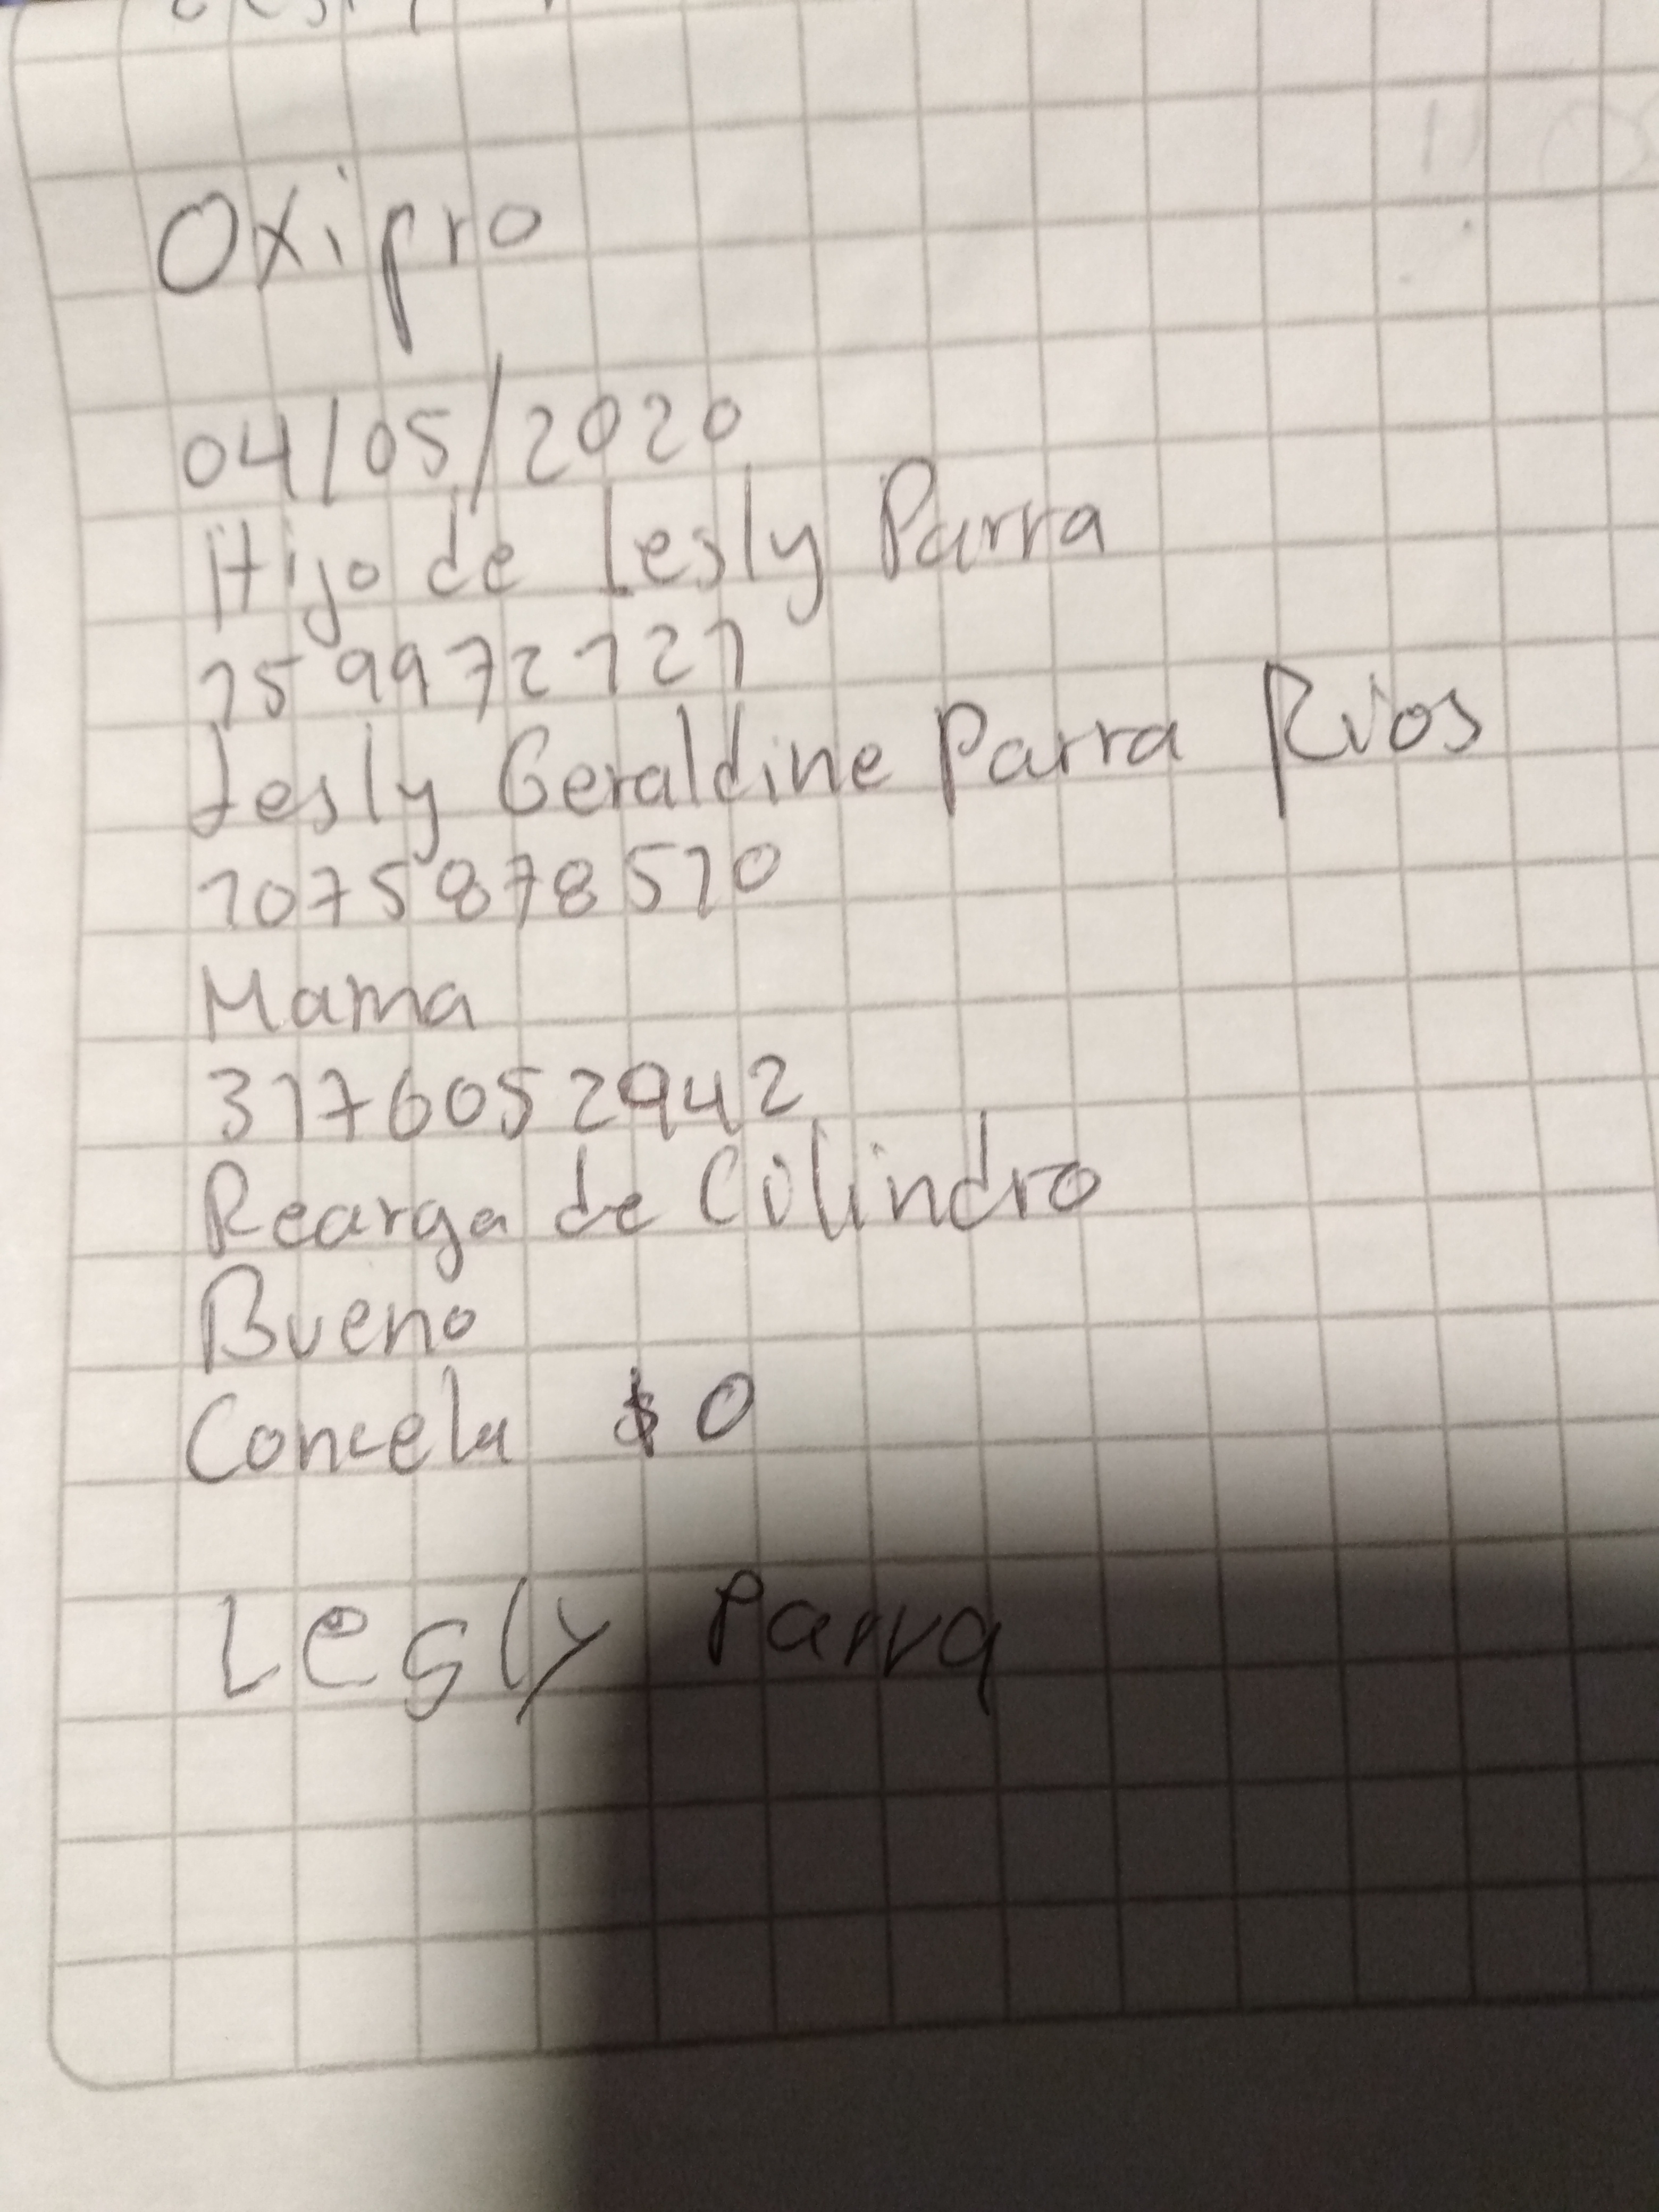 Oxipro
04/05/2020
Hijo de Lesly Parra
159972121
Lesly Geraldine Parra Rios
1075878510
Mama
3176052942
Rearga de Cilindro
Bueno
Concela $0
Lesly Parra